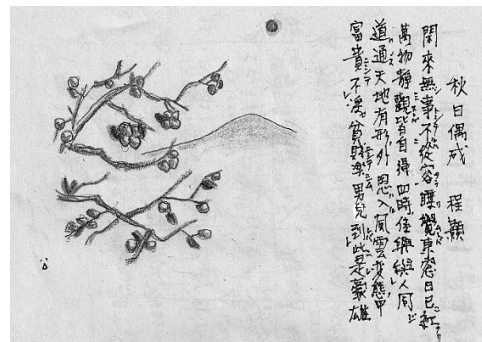 秋日偶成 程顥
閑來無事不從容 睡覺東窓日已紅
萬物靜觀皆自得 四時佳興與人同
道通天地有形外 思入風雲変態中
富貴不淫貧賤樂 男兒到此是豪雄